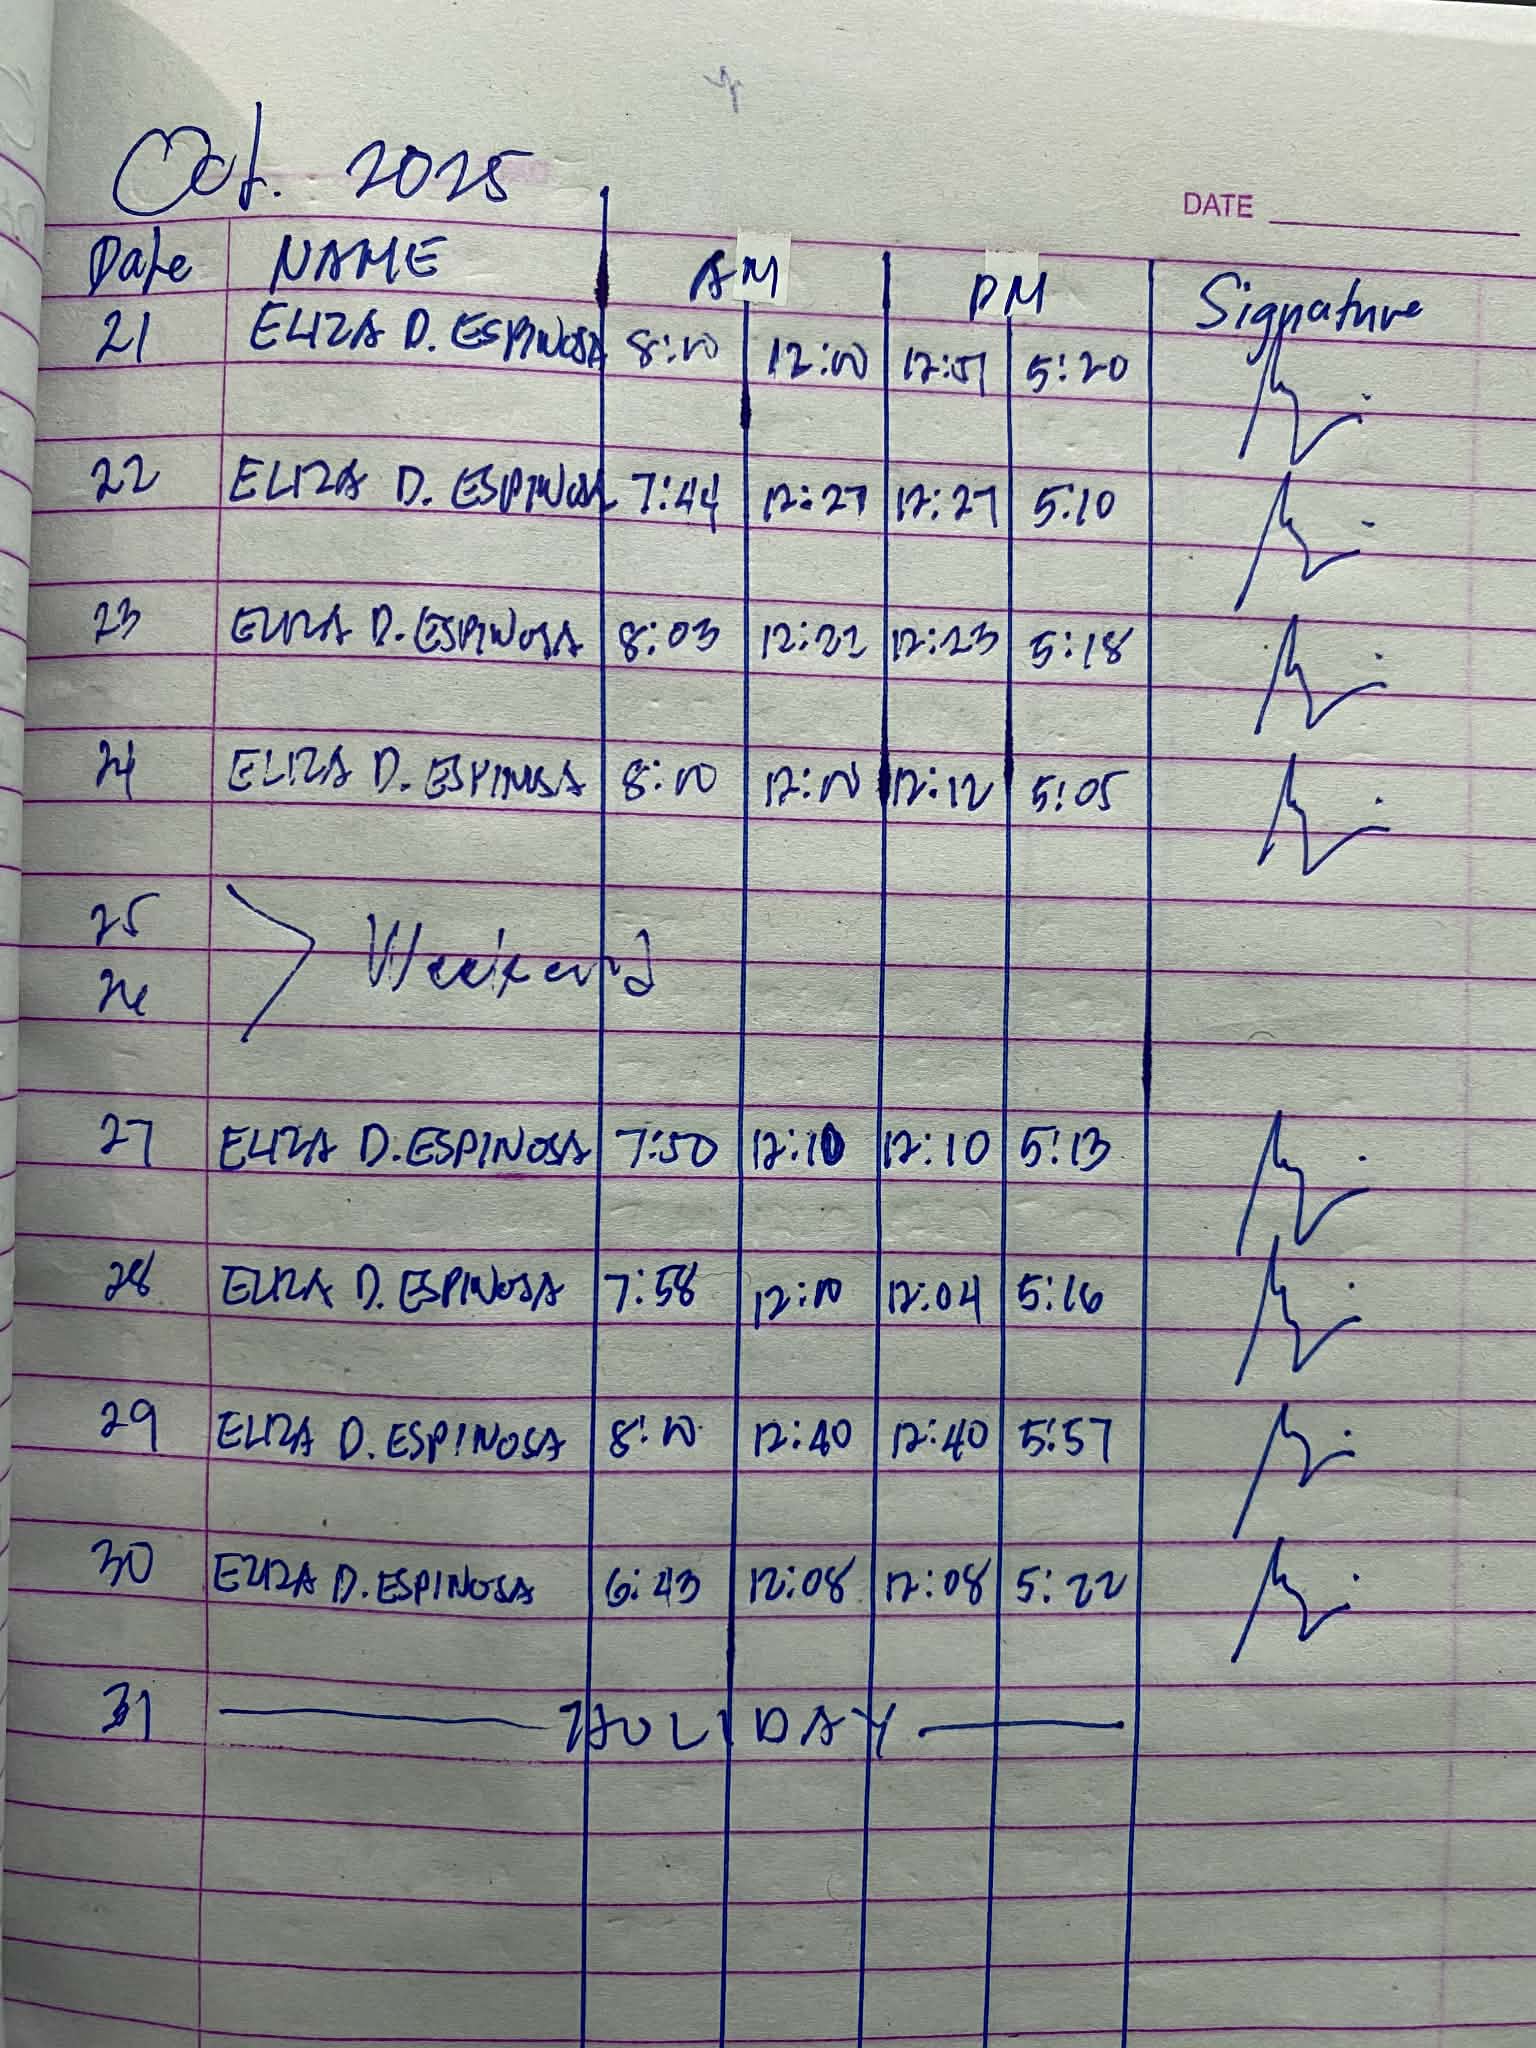 Oct. 2025
DATE
Date NAME AM PM Signature
21 ELIZA D. ESPINOSA 8:00 12:00 12:01 5:20
22 ELIZA D. ESPINOSA 7:44 12:27 12:27 5:10
23 ELIZA D. ESPINOSA 8:03 12:22 12:23 5:18
24 ELIZA D. ESPINOSA 8:00 12:00 12:12 5:05
25
26
Weekend
27 ELIZA D. ESPINOSA 7:50 12:10 12:10 5:13
28 ELIZA D. ESPINOSA 7:58 12:00 12:04 5:16
29 ELIZA D. ESPINOSA 8:00 12:40 12:40 5:57
30 ELIZA D. ESPINOSA 6:43 12:08 12:08 5:22
31 HOLIDAY